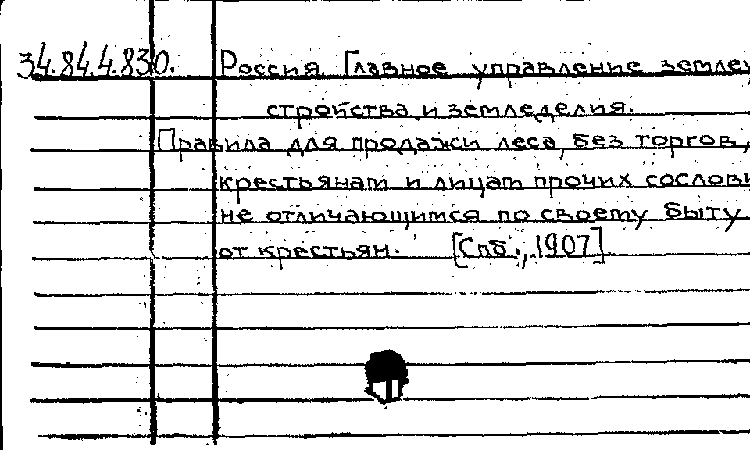 34.84.4.830. Россия Главное управление землеу
стройства и земледелия.
Правила для продажи леса, без торгов,
крестьянам и лицам прочих сослови
не отличающимся по своему быту
от крестьян. [Спб., 1907]